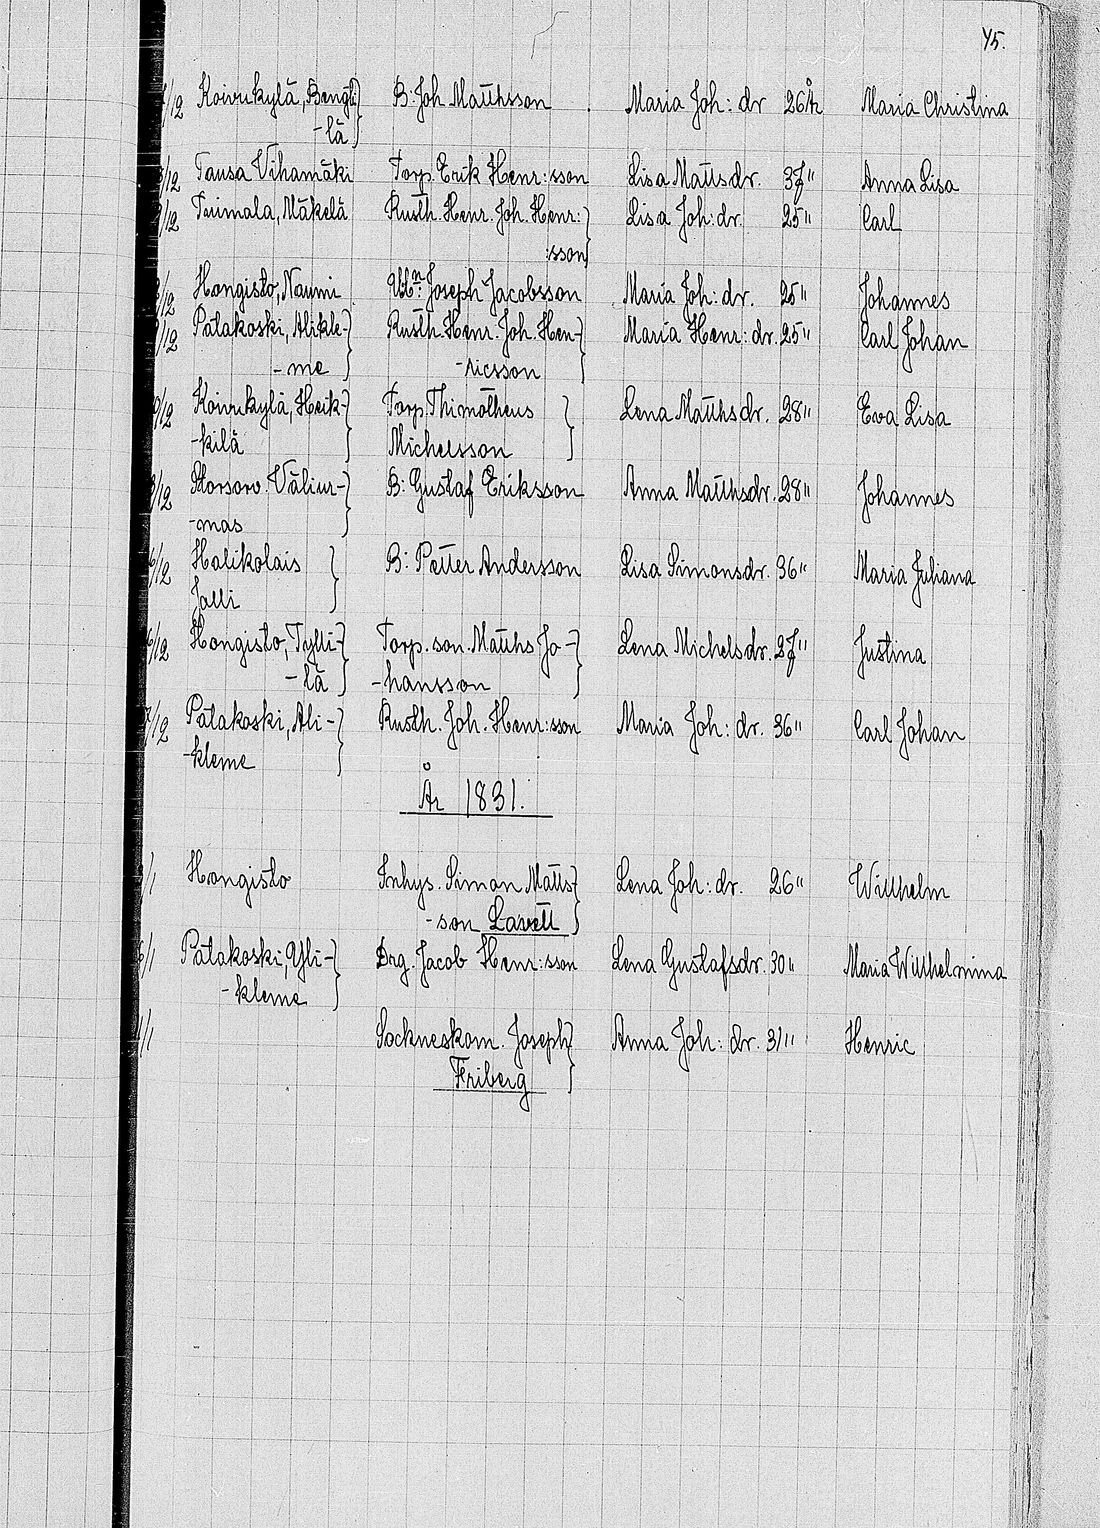 45.
/12 Koivukylä, Bengti- B: Joh Matthsson Maria Joh: dr 26 år Maria Christina
-lä
/12 Tausa Vihamäki Torp. Erik Henr:sson Lisa Mattsdr. 37" Anna Lisa
/12 Tuimala, Mäkelä Rusth. Henr. Joh. Henr: Lisa Joh: dr. 25" Carl
:sson
/12 Hongisto, Naumi Joseph Jacobsson Maria Joh: dr. 25" Johannes
/12 Patakoski, Alikle- Rusth. Henr. Joh. Hen- Maria Henr: dr. 25" Carl Johan
-me -ricsson
/12 Koivukylä, Heik- Torp. Thimotheus Lena Matthsdr. 28" Ewa Lisa
-kilä Michelsson
/12 Välim- B: Gustaf Eriksson Anna Matthsdr. 28" Johannes
-mas
6/12 Halikolais B: Petter Andersson Lisa Simonsdr. 36" Maria Juliana
Jalli
6/12 Hongisto, Tylli- Torp. son. Matths Jo- Lena Michelsdr. 27" Justina
-lä -hansson
7/12 Patakoski, Ali- Rusth. Joh. Henr:sson Maria Joh: dr. 36" Carl Johan
-kleme
År 1831.
/1 Hongisto Inhys. Simon Matts- Lena Joh: dr. 26" Willhelm
-son Lavell
6/1 Patakoski, Yli- Drg. Jacob Henr:sson Lena Gustafsdr. 30" Maria Willhelmina
-kleme
/1 Sockneskom. Joseph Anna Joh: dr. 31" Henric
Friberg